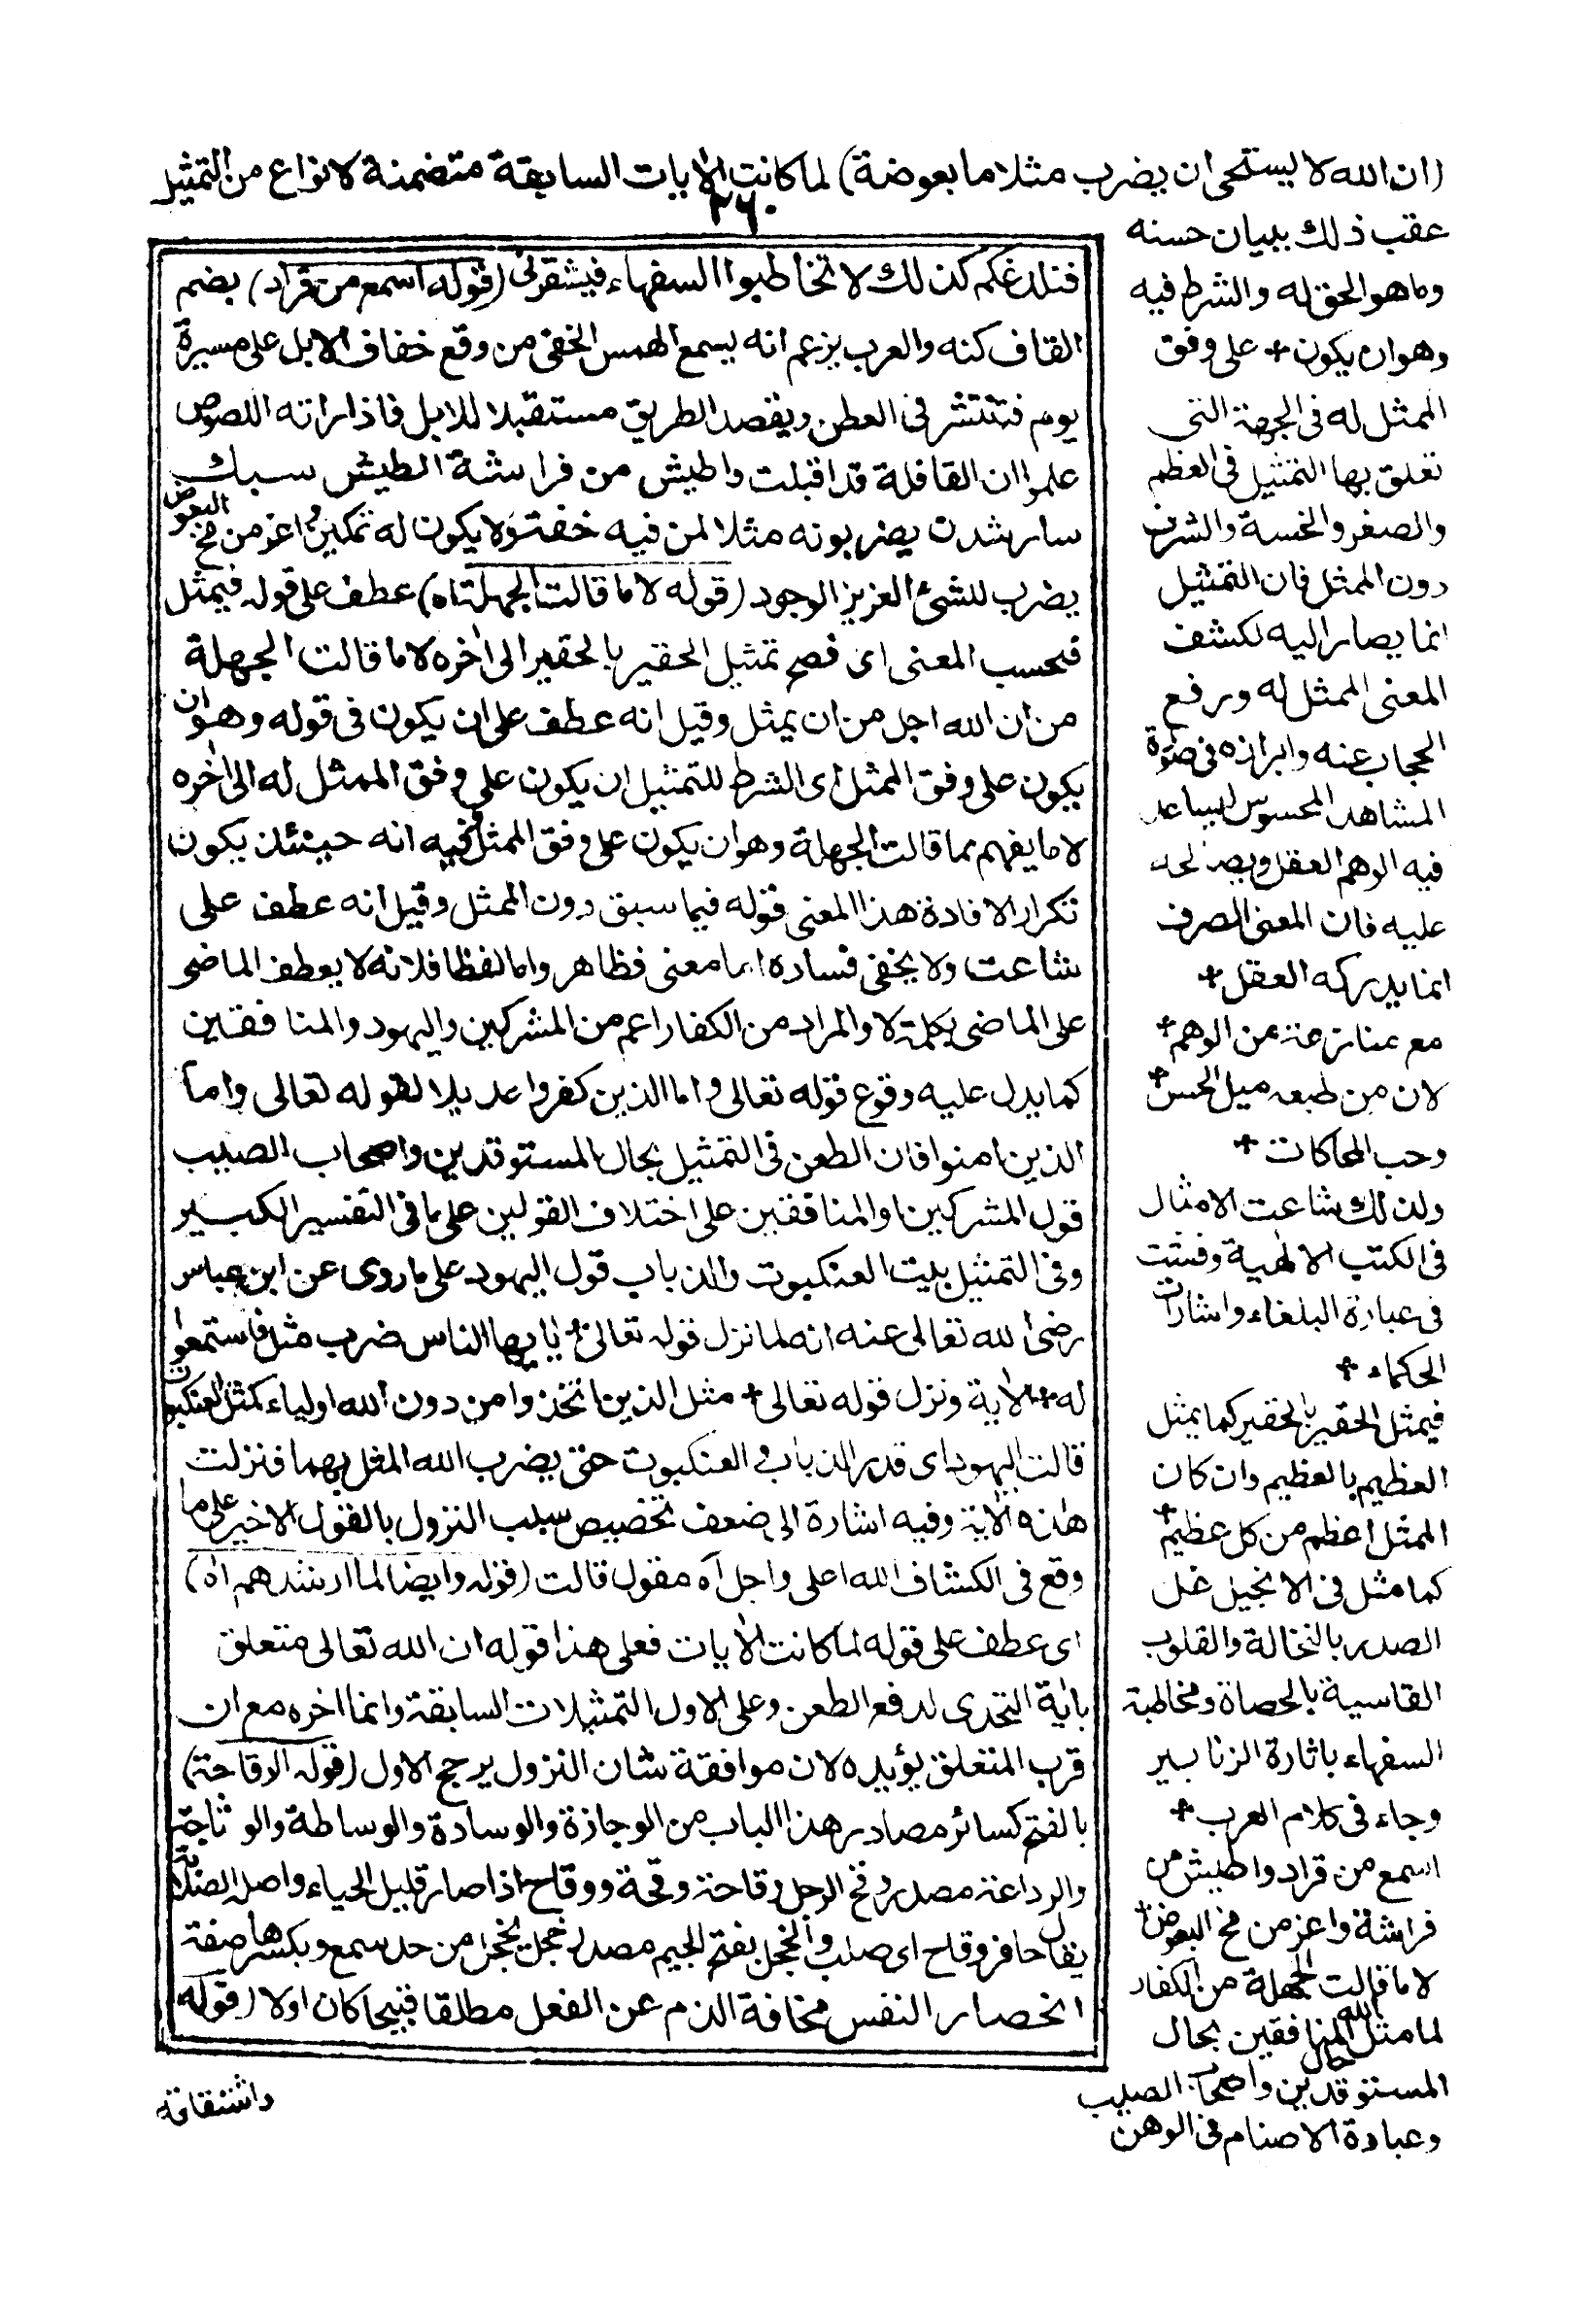 (ان الله لا يستحى ان يضرب مثلا ما بعوضة) لما كانت الاٰيات السابقة متضمنة لانواع من التمثيل
٢٦٠
عقب ذلك ببيان حسنه
وما هو الحق له والشرط فيه
وهو ان يكون + على وفق
الممثل له فى الجهة التى
تعلق بها التمثيل فى العظم
والصغر والخسة والشرف
دون الممثل فان التمثيل
انما يصار اليه لكشف
المعنى الممثل له ورفع
الحجاب عنه وابرازه فى صورة
المشاهد المحسوس ليساعد
فيه الوهم العقل ويصالحه
عليه فان المعنى الصرف
انما يدركه العقل +
مع منازعة من الوهم +
لان من طبعه ميل الحس +
وحب المحاكات +
ولذلك شاعت الامثال
فى الكتب الالٰهية وفشت
فى عبارة البلغاء واشارات
الحكماء +
فيمثل الحقير بالحقير كما يمثل
العظيم بالعظيم وان كان
الممثل اعظم من كل عظيم +
كما مثل فى الانجيل غل
الصدر بالنخالة والقلوب
القاسية بالحصاة ومخاطبة
السفهاء باثارة الزنابير
وجاء فى كلام العرب +
اسمع من قراد واطيش من
فراشة واعز من مخ البعوض +
لا ما قالت الجهلة من الكفار
لما مثل الله المنافقين بحال
المستوقدين واصحاب الصيب
وعبادة الاصنام فى الوهن
فتلدغكم كذلك لا تخاطبوا السفهاء فيشقولى (قوله اسمع من قراد) بضم
القاف كنه والعرب يزعم انه يسمع الهمس الخفى من وقع خفاف الابل على مسيرة
يوم فتنتشر فى العطن ويقصد الطريق مستقبلا للابل فاذا راته اللصوص
علموا ان القافلة قد اقبلت واطيش من فراشة الطيش سبك
سار شدن يضربونه مثلا لمن فيه خفة ولا يكون له تمكين واعز من مخ البعوض
يضرب للشئ العزيز الوجود (قوله لا ما قالت الجهلة اه) عطف على قوله فيمثل
فحسب المعنى اى فصح تمثيل الحقير بالحقير الى اٰخره لا ما قالت الجهلة
من ان الله اجل من ان يمثل وقيل انه عطف على ان يكون فى قوله وهو ان
يكون على وفق الممثل اى الشرط للتمثيل ان يكون على وفق الممثل له الى اٰخره
لا ما يفهم مما قالت الجهلة وهو ان يكون على وفق الممثل وفيه انه حينئذ يكون
تكرار الافادة هذا المعنى قوله فيما سبق دون الممثل وقيل انه عطف على
شاعت ولا يخفى فساده اما معنى فظاهر واما لفظا فلانه لا يعطف الماضى
على الماضى بكلمة لا والمراد من الكفار اعم من المشركين واليهود والمنافقين
كما يدل عليه وقوع قوله تعالى واما الذين كفروا عديلا لقوله تعالى واما
الذين امنوا فان الطعن فى التمثيل بحال المستوقدين واصحاب الصيب
قول المشركين او المنافقين على اختلاف القولين على ما فى التفسير الكبير
وفى التمثيل ببيت العنكبوت والذباب قول اليهود على ما روى عن ابن عباس
رضى الله تعالى عنه انه لما نزل قوله تعالى + يٰايها الناس ضرب مثل فاستمعوا
له + الاٰية ونزل قوله تعالى + مثل الذين اتخذوا من دون الله اولياء كمثل العنكبوت
قالت اليهود اى قدر للذباب والعنكبوت حتى يضرب الله المثل بهما فنزلت
هٰذه الاٰية وفيه اشارة الى ضعف تخصيص سبب النزول بالقول الاخير على ما
وقع فى الكشاف الله اعلى واجل اه مقول قالت (قوله وايضا لما ارشدهم اه)
اى عطف على قوله لما كانت الاٰيات فعلى هذا قوله ان الله تعالى متعلق
باٰية التحدى لدفع الطعن وعلى الاول التمثيلات السابقة وانما اخره مع ان
قرب المتعلق يؤيده لان موافقة شان النزول يرجح الاول (قوله الوقاحة)
بالفتح كسائر مصادر هذا الباب من الوجازة والوسادة والوساطة والوثاجة
والوداعة مصدر وقح الرجل وقاحة وقحة ووقاح اذا صار قليل الحياء واصله الصلابة
يقال حافر وقاح اى صلب والخجل بفتح الجيم مصدر خجل يخجل من حد سمع وبكسرها صفة
انحصار النفس مخافة الذم عن الفعل مطلقا قبيحا كان اولا (قوله
واشتقاقه